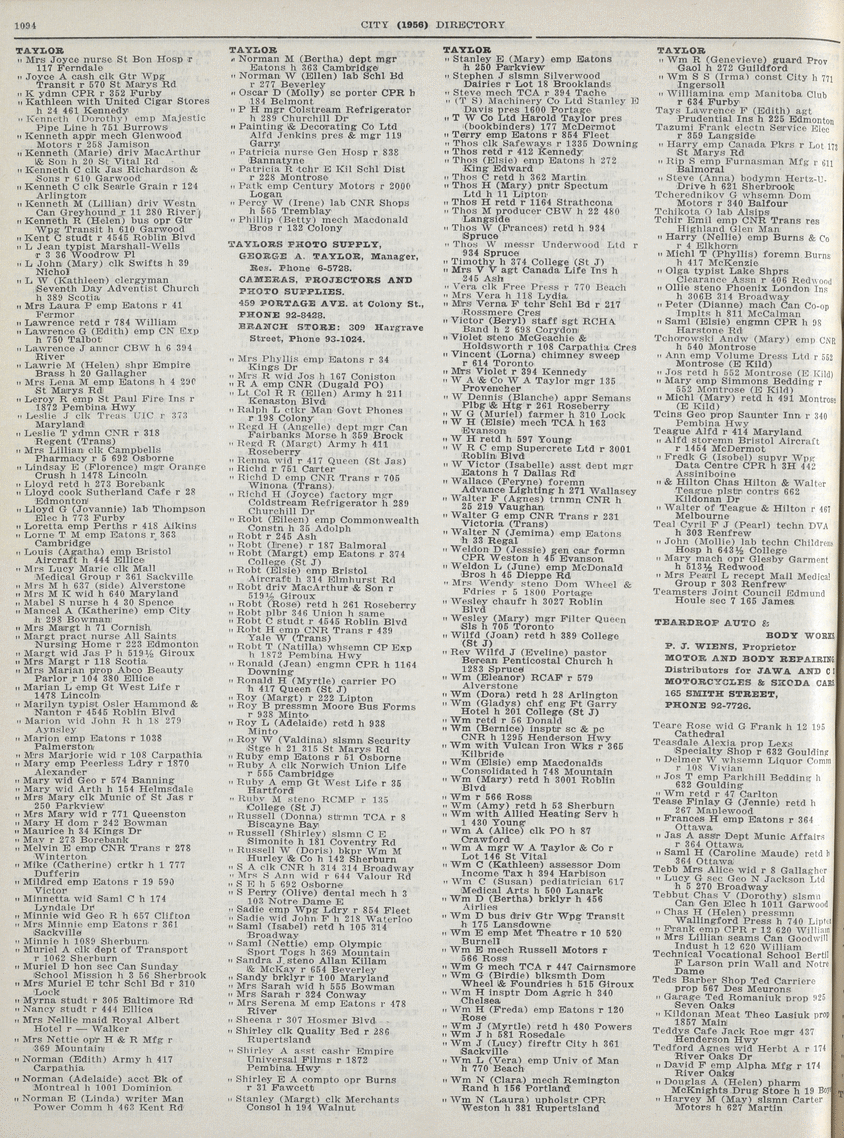 1094
CITY (1956) DIRECTORY
TAYLOR
" Mrs Joyce nurse St Bon Hosp r
117 Ferndale
" Joyce A cash clk Gtr Wpg
Transit r 570 St Marys Rd
" K ydmn CPR r 352 Furby
" Kathleen with United Cigar Stores
h 24 461 Kennedy
" Kenneth (Dorothy) emp Majestic
Pipe Line h 751 Burrows
" Kenneth appr mech Glenwood
Motors r 258 Jamison
" Kenneth (Marie) driv MacArthur
& Son h 20 St Vital Rd
" Kenneth C clk Jas Richardson &
Sons r 610 Garwood
" Kenneth C clk Searle Grain r 124
Arlington
" Kenneth M (Lillian) driv Westn
Can Greyhound r 11 280 River
" Kenneth R (Helen) bus opr Gtr
Wpg Transit h 610 Garwood
" Kent C studt r 4545 Roblin Blvd
" L Jean typist Marshall-Wells
r 3 36 Woodrow Pl
" L John (Mary) clk Swifts h 39
Nichol
" L W (Kathleen) clergyman
Seventh Day Adventist Church
h 389 Scotia
" Mrs Laura P emp Eatons r 41
Fermor
" Lawrence retd r 784 William
" Lawrence G (Edith) emp CN Exp
h 750 Talbot
" Lawrence J anncr CBW h 6 394
River
" Lawrie M (Helen) shpr Empire
Brass h 20 Gallagher
" Mrs Lena M emp Eatons h 4 290
St Marys Rd
" Leroy R emp St Paul Fire Ins r
1872 Pembina Hwy
" Leslie J clk Treas UIC r 373
Maryland
" Leslie T ydmn CNR r 318
Regent (Trans)
" Mrs Lillian clk Campbells
Pharmacy r 5 692 Osborne
" Lindsay E (Florence) mgr Orange
Crush h 1478 Lincoln
" Lloyd retd h 273 Borebank
" Lloyd cook Sutherland Cafe r 28
Edmonton
" Lloyd G (Jovannie) lab Thompson
Elec h 773 Furby
" Loretta emp Perths r 418 Aikins
" Lorne T M emp Eatons r 363
Cambridge
" Louis (Agatha) emp Bristol
Aircraft h 444 Ellice
" Mrs Lucy Marie clk Mall
Medical Group r 361 Sackville
" Mrs M h 637 (side) Alverstone
" Mrs M K wid h 640 Maryland
" Mabel S nurse h 4 30 Spence
" Mancel A (Katherine) emp City
h 298 Bowman
" Mrs Margt h 71 Cornish
" Margt pract nurse All Saints
Nursing Home r 223 Edmonton
" Margt wid Jas P h 519½ Giroux
" Mrs Margt r 118 Scotia
" Mrs Marian prop Abco Beauty
Parlor r 104 380 Ellice
" Marian L emp Gt West Life r
1478 Lincoln
" Marilyn typist Osler Hammond &
Nanton r 4545 Roblin Blvd
" Marion wid John R h 18 279
Aynsley
" Marion emp Eatons r 1038
Palmerston
" Mrs Marjorie wid r 108 Carpathia
" Mary emp Peerless Ldry r 1870
Alexander
" Mary wid Geo r 574 Banning
" Mary wid Arth h 154 Helmsdale
" Mrs Mary clk Munic of St Jas r
250 Parkview
" Mrs Mary wid r 771 Queenston
" Mary H dom r 242 Bowman
" Maurice h 34 Kings Dr
" May r 273 Borebank
" Melvin E emp CNR Trans r 278
Winterton
" Mike (Catherine) crtkr h 1 777
Dufferin
" Mildred emp Eatons r 19 590
Victor
" Minnetta wid Saml C h 174
Lyndale Dr
" Minnie wid Geo R h 657 Clifton
" Mrs Minnie emp Eatons r 361
Sackville
" Minnie h 1089 Sherburn
" Muriel A clk dept of Transport
r 1062 Sherburn
" Muriel D hon sec Can Sunday
School Mission h 3 56 Sherbrook
" Mrs Muriel E tchr Schl Bd r 310
Lock
" Myrna studt r 305 Baltimore Rd
" Nancy studt r 444 Ellice
" Mrs Nellie maid Royal Albert
Hotel r — Walker
" Mrs Nettie opr H & R Mfg r
369 Mountain
" Norman (Edith) Army h 417
Carpathia
" Norman (Adelaide) acct Bk of
Montreal h 1001 Dominion
" Norman E (Linda) writer Man
Power Comm h 463 Kent Rd
TAYLOR
" Norman M (Bertha) dept mgr
Eatons h 363 Cambridge
" Norman W (Ellen) lab Schl Bd
r 277 Beverley
" Oscar D (Molly) sc porter CPR h
184 Belmont
" P H mgr Coldstream Refrigerator
h 289 Churchill Dr
" Painting & Decorating Co Ltd
Alfd Jenkins pres & mgr 119
Garry
" Patricia nurse Gen Hosp r 838
Bannatyne
" Patricia R tchr E Kil Schl Dist
r 228 Montrose
" Patk emp Century Motors r 2000
Logan
" Percy W (Irene) lab CNR Shops
h 565 Tremblay
" Phillip (Betty) mech Macdonald
Bros r 132 Colony
TAYLORS PHOTO SUPPLY,
GEORGE A. TAYLOR, Manager,
Res. Phone 6-5728.
CAMERAS, PROJECTORS AND
PHOTO SUPPLIES.
459 PORTAGE AVE. at Colony St.,
PHONE 92-8428.
BRANCH STORE: 309 Hargrave
Street, Phone 93-1024.
" Mrs Phyllis emp Eatons r 34
Kings Dr
" Mrs R wid Jos h 167 Coniston
" R A emp CNR (Dugald PO)
" Lt Col R R (Ellen) Army h 211
Kenaston Blvd
" Ralph L ctkr Man Govt Phones
r 198 Colony
" Regd H (Angelle) dept mgr Can
Fairbanks Morse h 359 Brock
" Regd R (Margt) Army h 411
Roseberry
" Renna wid r 417 Queen (St Jas)
" Richd r 751 Carter
" Richd D emp CNR Trans r 705
Winona (Trans)
" Richd H (Joyce) factory mgr
Coldstream Refrigerator h 289
Churchill Dr
" Robt (Eileen) emp Commonwealth
Constn h 35 Adolph
" Robt r 245 Ash
" Robt (Irene) r 187 Balmoral
" Robt (Margt) emp Eatons r 374
College (St J)
" Robt (Elsie) emp Bristol
Aircraft h 314 Elmhurst Rd
" Robt driv MacArthur & Son r
519½ Giroux
" Robt (Rose) retd h 261 Roseberry
" Robt plbr 346 Union h same
" Robt C studt r 4545 Roblin Blvd
" Robt H emp CNR Trans r 439
Yale W (Trans)
" Robt T (Natilla) whsemn CP Exp
h 1872 Pembina Hwy
" Ronald (Jean) engmn CPR h 1164
Downing
" Ronald H (Myrtle) carrier PO
h 417 Queen (St J)
" Roy (Margt) r 222 Lipton
" Roy B pressmn Moore Bus Forms
r 938 Minto
" Roy L (Adelaide) retd h 938
Minto
" Roy W (Valdina) slsmn Security
Stge h 21 315 St Marys Rd
" Ruby emp Eatons r 51 Osborne
" Ruby A clk Norwich Union Life
r 555 Cambridge
" Ruby A emp Gt West Life r 35
Hartford
" Ruby M steno RCMP r 135
College (St J)
" Russell (Donna) strmn TCA r 8
Biscayne Bay
" Russell (Shirley) slsmn C E
Simonite h 181 Coventry Rd
" Russell W (Doris) bkpr Wm M
Hurley & Co h 142 Sherburn
" S A clk CNR h 314 314 Broadway
" Mrs S Ann wid r 644 Valour Rd
" S E h 5 692 Osborne
" S Perry (Olive) dental mech h 3
103 Notre Dame E
" Sadie emp Wpg Ldry r 854 Fleet
" Sadie wid John F h 218 Waterloo
" Saml (Isabel) retd h 105 314
Broadway
" Saml (Nettie) emp Olympic
Sport Togs h 369 Mountain
" Sandra J steno Allan Killam
& McKay r 654 Beverley
" Sandy brklyr r 100 Maryland
" Mrs Sarah wid h 555 Bowman
" Mrs Sarah r 324 Conway
" Mrs Serena M emp Eatons r 478
River
" Sheena r 307 Hosmer Blvd
" Shirley clk Quality Bed r 286
Rupertsland
" Shirley A asst cashr Empire
Universal Films r 1872
Pembina Hwy
" Shirley E A compto opr Burns
r 31 Fawcett
" Stanley (Margt) clk Merchants
Consol h 194 Walnut
TAYLOR
" Stanley E (Mary) emp Eatons
h 250 Parkview
" Stephen J slsmn Silverwood
Dairies r Lot 18 Brooklands
" Steve mech TCA r 394 Tache
" (T S) Machinery Co Ltd Stanley E
Davis pres 1600 Portage
" T W Co Ltd Harold Taylor pres
(bookbinders) 177 McDermot
" Terry emp Eatons r 854 Fleet
" Thos clk Safeways r 1335 Downing
" Thos retd r 412 Kennedy
" Thos (Elsie) emp Eatons h 272
King Edward
" Thos C retd h 362 Martin
" Thos H (Mary) pntr Spectum
Ltd h 11 Lipton
" Thos H retd r 1164 Strathcona
" Thos M producer CBW h 22 480
Langside
" Thos W (Frances) retd h 934
Spruce
" Thos W messr Underwood Ltd r
934 Spruce
" Timothy h 374 College (St J)
" Mrs V V agt Canada Life Ins h
245 Ash
" Vera clk Free Press r 770 Beach
" Mrs Vera h 118 Lydia
" Mrs Verna F tchr Schl Bd r 217
Rossmere Cres
" Victor (Beryl) staff sgt RCHA
Band h 2 698 Corydon
" Violet steno McGeachie &
Holdsworth r 108 Carpathia Cres
" Vincent (Lorna) chimney sweep
r 614 Toronto
" Mrs Violet r 394 Kennedy
" W A & Co W A Taylor mgr 135
Provencher
" W Dennis (Blanche) appr Semans
Plbg & Htg r 261 Roseberry
" W G (Muriel) farmer h 310 Lock
" W H (Elsie) mech TCA h 163
Evanson
" W H retd h 597 Young
" W R C emp Supercrete Ltd r 3001
Roblin Blvd
" W Victor (Isabelle) asst dept mgr
Eatons h 7 Dallas Rd
" Wallace (Feryne) foremn
Advance Lighting h 271 Wallasey
" Walter F (Agnes) trnmn CNR h
25 219 Vaughan
" Walter G emp CNR Trans r 231
Victoria (Trans)
" Walter N (Jemima) emp Eatons
h 33 Regal
" Weldon D (Jessie) gen car formn
CPR Weston h 45 Evanson
" Weldon L (June) emp McDonald
Bros h 45 Dieppe Rd
" Mrs Wendy steno Dom Wheel &
Fdries r 5 1800 Portage
" Wesley chaufr h 3027 Roblin
Blvd
" Wesley (Mary) mgr Filter Queen
Sls h 705 Toronto
" Wilfd (Joan) retd h 389 College
(St J)
" Rev Wilfd J (Eveline) pastor
Berean Pentecostal Church h
1283 Spruce
" Wm (Eleanor) RCAF r 579
Alverstone
" Wm (Dora) retd h 28 Arlington
" Wm (Gladys) chf eng Ft Garry
Hotel h 201 College (St J)
" Wm retd r 56 Donald
" Wm (Bernice) insptr sc & pc
CNR h 1295 Henderson Hwy
" Wm with Vulcan Iron Wks r 365
Kilbride
" Wm (Elsie) emp Macdonalds
Consolidated h 748 Mountain
" Wm (Mary) retd h 3001 Roblin
Blvd
" Wm r 566 Ross
" Wm (Amy) retd h 53 Sherburn
" Wm with Allied Heating Serv h
1 430 Young
" Wm A (Alice) clk PO h 87
Crawford
" Wm A mgr W A Taylor & Co r
Lot 146 St Vital
" Wm C (Kathleen) assessor Dom
Income Tax h 394 Harbison
" Wm C (Susan) pediatrician 617
Medical Arts h 500 Lanark
" Wm D (Bertha) brklyr h 456
Airlies
" Wm D bus driv Gtr Wpg Transit
h 175 Lansdowne
" Wm E emp Met Theatre r 10 520
Burnell
" Wm E mech Russell Motors r
566 Ross
" Wm G mech TCA r 447 Cairnsmore
" Wm G (Birdie) blksmth Dom
Wheel & Foundries h 515 Giroux
" Wm H insptr Dom Agric h 340
Chelsea
" Wm H (Freda) emp Eatons r 120
Rose
" Wm J (Myrtle) retd h 480 Powers
" Wm J h 581 Rosedale
" Wm J (Lucy) fireftr City h 361
Sackville
" Wm L (Vera) emp Univ of Man
h 770 Beach
" Wm N (Clara) mech Remington
Rand h 156 Portland
" Wm N (Laura) upholstr CPR
Weston h 381 Rupertsland
TAYLOR
" Wm R (Genevieve) guard Prov
Gaol h 272 Guildford
" Wm S S (Irma) const City h 771
Ingersoll
" Williamina emp Manitoba Club
r 634 Furby
Tays Lawrence F (Edith) agt
Prudential Ins h 225 Edmonton
Tazumi Frank electn Service Elec
r 359 Langside
" Harry emp Canada Pkrs r Lot 178
St Marys Rd
" Rip S emp Furnasman Mfg r 611
Balmoral
" Steve (Anna) bodymn Hertz-U-
Drive h 621 Sherbrook
Tcherednikov G whsemn Dom
Motors r 340 Balfour
Tchikota O lab Alsips
Tchir Emil emp CNR Trans res
Highland Glen Man
" Harry (Nellie) emp Burns & Co
r 4 Elkhorn
" Michl T (Phyllis) foremn Burns
h 417 McKenzie
" Olga typist Lake Shprs
Clearance Assn r 406 Redwood
" Ollie steno Phoenix London Ins
h 306B 314 Broadway
" Peter (Dianne) mach Can Co-op
Implts h 811 McCalman
" Saml (Elsie) engmn CPR h 98
Harstone Rd
Tchorowski Andw (Mary) emp CNR
h 540 Montrose
" Ann emp Volume Dress Ltd r 552
Montrose (E Kild)
" Jos retd h 552 Montrose (E Kild)
" Mary emp Simmons Bedding r
552 Montrose (E Kild)
" Michl (Mary) retd h 491 Montrose
(E Kild)
Tcins Geo prop Saunter Inn r 340
Pembina Hwy
Teague Alfd r 414 Maryland
" Alfd storemn Bristol Aircraft
r 1454 McDermot
" Fredk G (Isobel) supvr Wpg
Data Centre CPR h 3H 442
Assiniboine
" & Hilton Chas Hilton & Walter
Teague plstr contrs 662
Kildonan Dr
" Walter of Teague & Hilton r 467
Melbourne
Teal Cyril F J (Pearl) techn DVA
h 303 Renfrew
" John (Mollie) lab techn Childrens
Hosp h 643½ College
" Mary mach opr Glesby Garment
h 513½ Redwood
" Mrs Pearl L recept Mall Medical
Group r 303 Renfrew
Teamsters Joint Council Edmund
Houle sec 7 165 James
TEARDROP AUTO &
BODY WORKS
P. J. WIENS, Proprietor
MOTOR AND BODY REPAIRING
Distributors for JAWA AND
MOTORCYCLES & SKODA CARS
165 SMITH STREET,
PHONE 92-7726.
Teare Rose wid G Frank h 12 195
Cathedral
Teasdale Alexia prop Lexs
Specialty Shop r 632 Goulding
" Delmer W whsemn Liquor Comm
r 108 Vivian
" Jos T emp Parkhill Bedding h
632 Goulding
" Wm retd r 47 Carlton
Tease Finlay G (Jennie) retd h
267 Maplewood
" Frances H emp Eatons r 364
Ottawa
" Jas A asst Dept Munic Affairs
r 364 Ottawa
" Saml H (Caroline Maude) retd h
364 Ottawa
Tebb Mrs Alice wid r 8 Gallagher
" Lucy G sec Geo N Jackson Ltd
h 5 270 Broadway
Tebbut Chas V (Dorothy) slsmn
Can Gen Elec h 1011 Garwood
" Chas H (Helen) pressmn
Wallingford Press h 740 Lipton
" Frank emp CPR r 12 620 William
" Mrs Lillian seams Can Goodwill
Indust h 12 620 William
Technical Vocational School Bertil
F Larson prin Wall and Notre
Dame
Teds Barber Shop Ted Carriere
prop 567 Des Meurons
" Garage Ted Romaniuk prop 925
Seven Oaks
" Kildonan Meat Theo Lasiuk prop
1857 Main
Teddys Cafe Jack Roe mgr 437
Henderson Hwy
Tedford Agnes wid Herbt A r 174
River Oaks Dr
" David F emp Alpha Mfg r 174
River Oaks
" Douglas A (Helen) pharm
McKnights Drug Store h 19
" Harvey M (May) slsmn Carter
Motors h 627 Martin